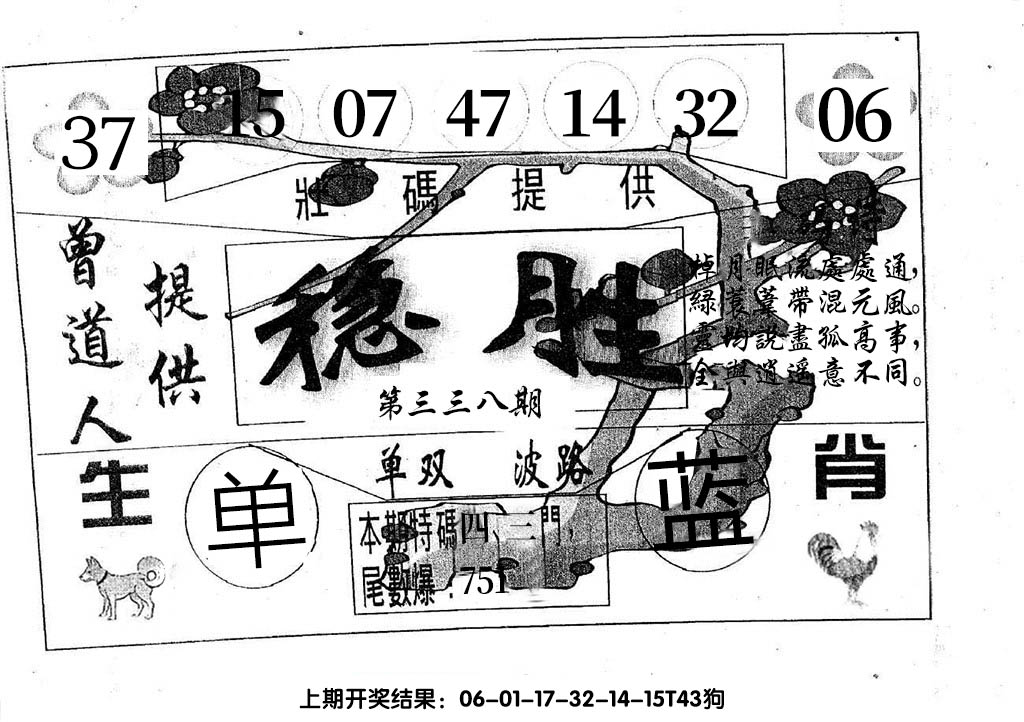 37 15 07 47 14 32 06
壯碼提供
曾道人
提供
稳胜
第三三八期
綠蓑蓋帶混元風。
說盡孤高事,
全與逍遥意不同。
单双 波路
生 单 蓝 肖
本期特碼四、三門,
尾數爆:751
上期开奖结果:06-01-17-32-14-15T43狗